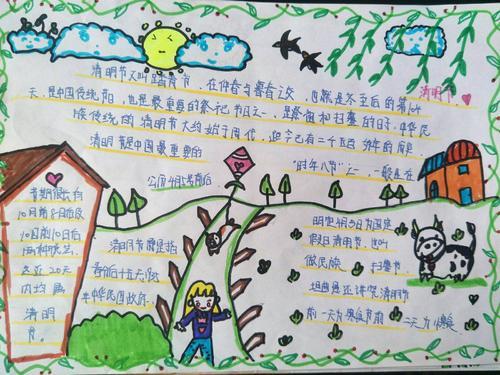 清明节又叫踏青节，在仲春与暮春之交，也就是冬至后的第
天，是中国传统节日，也是最重要的祭祀节日之一，是祭祖和扫墓的日子。中华民
族传统的清明节大约始于周代，距今已有二千五百多年的历史
清明节是中国最重要的
"时年八节"之一，一般是在
公历4月5号前后
清明节。
节期很长，有
10日前8日后及
10日前10日后
两种说法，
这近20天
内均属
清明
节。
清明节原是指
春分后十五天，
年中华民国政府
明定4月5日为国定
假日清明节，也叫
做民族扫墓节。
清明节
前一天为寒食节
二天为